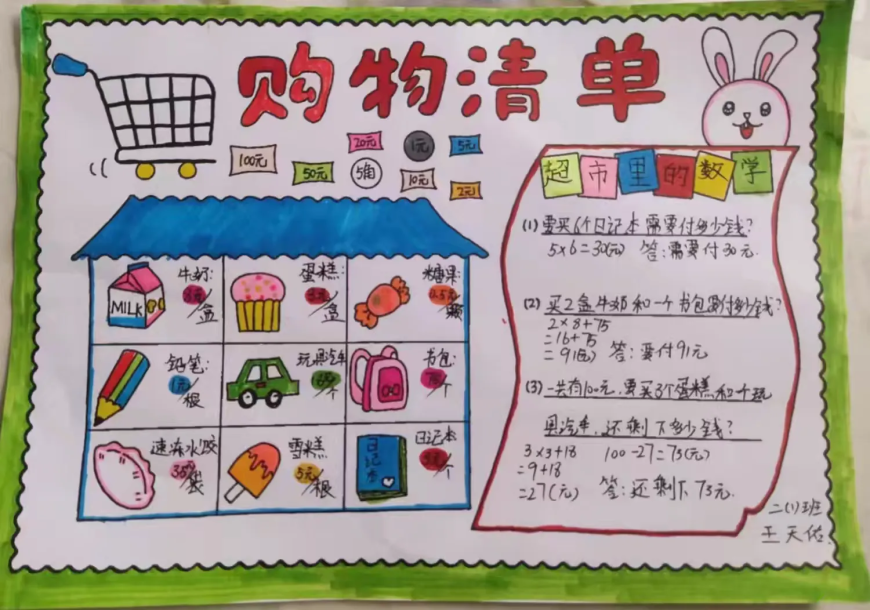 购物清单
100元
50元
20元
5角
1元
10元
5元
2元
牛奶:
8元/盒
MILK
蛋糕:
3元/盒
糖果:
0.5元/颗
铅笔:
1元/根
玩具汽车
元/个
书包:
75元/个
速冻水饺
35元/袋
雪糕
5元/根
日记本
日记本
5元/个
超市里的数学
(1) 要买6个日记本需要付多少钱?
5×6=30(元) 答:需要付30元.
(2) 买2盒牛奶和一个书包要付多少钱?
2×8+75
=16+75
=91(元) 答:要付91元
(3) 一共有100元,要买3个蛋糕和一个玩
具汽车,还剩下多少钱?
3×3+18 100-27=73(元)
=9+18
=27(元) 答:还剩下73元.
二(1)班
王天佑.